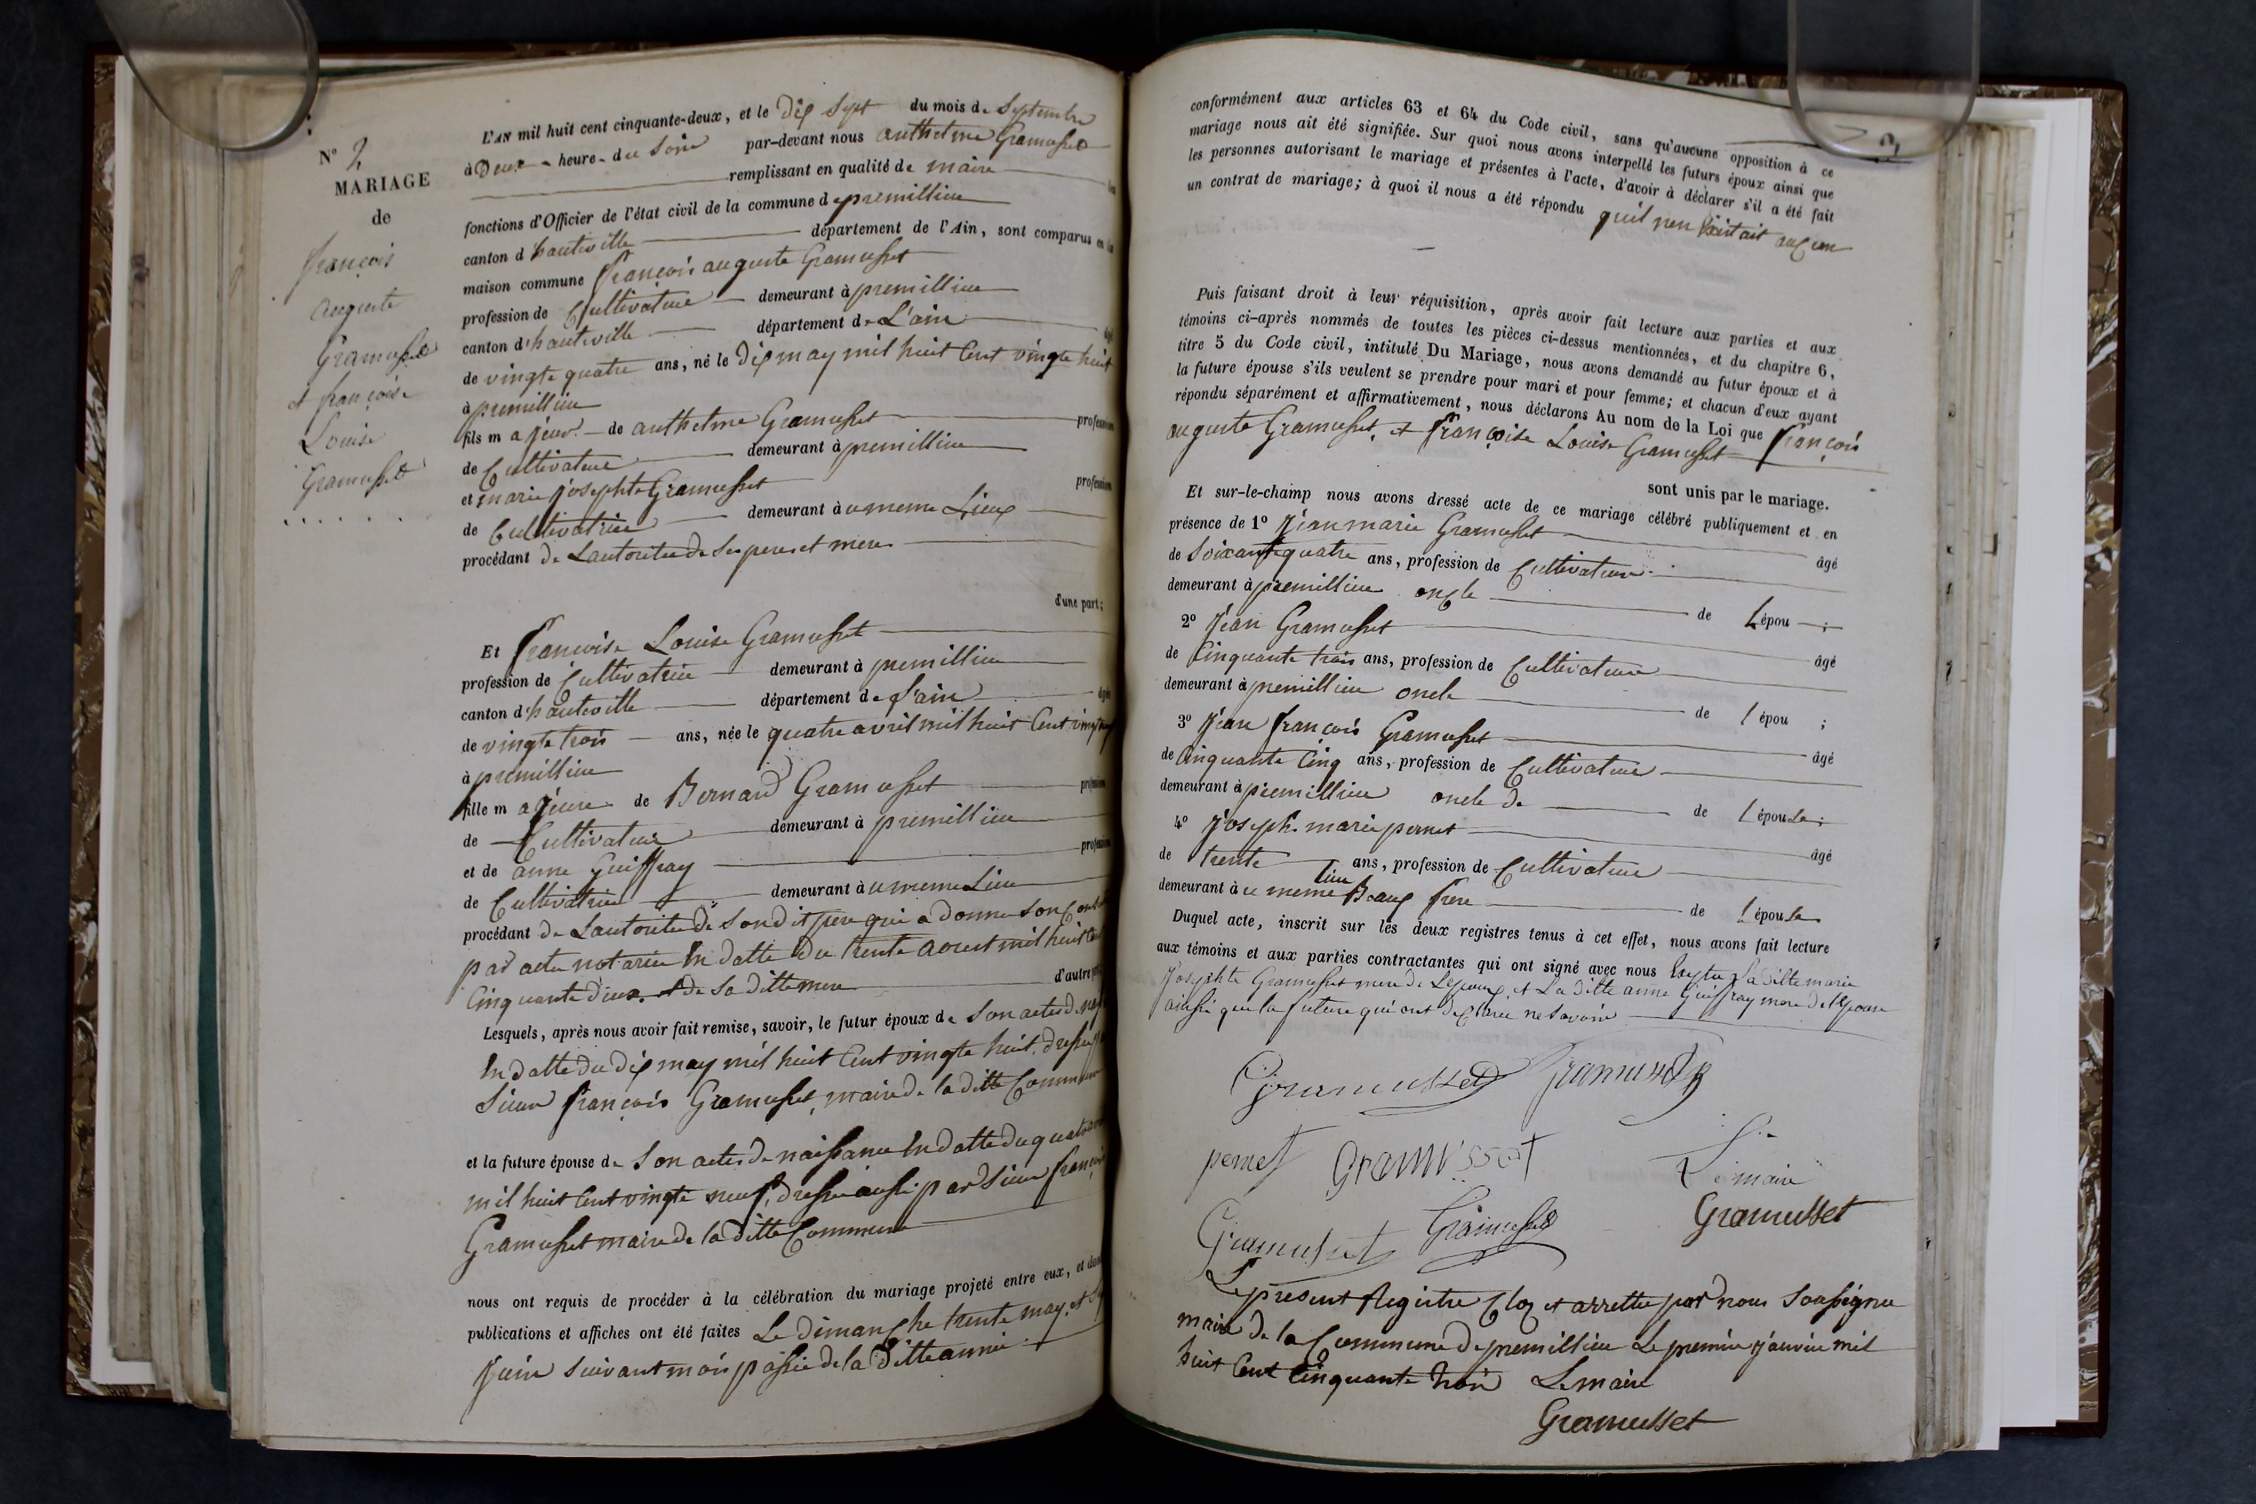 N° 2
MARIAGE
de
françois
auguste
Gramusset
et françoise
Louise
Gramusset
L'AN mil huit cent cinquante-deux, et le Dix Sept du mois de Septembre
à Deux heures du Soire par-devant nous anthelme Gramusset
remplissant en qualité de maire
fonctions d'Officier de l'état civil de la commune de premillieu
canton d'hauteville département de l'Ain, sont comparus en la
maison commune françois auguste Gramusset
profession de Cultivateur demeurant à premillieu
canton d'hauteville département de L'ain
de vingte quatre ans, né le Dix may mil huit Cent vingte huit
à premillieu
fils majeur de anthelme Gramusset profession
de Cultivateur demeurant à premillieu
et marie josephte Gramusset profession
de Cultivatrice demeurant àu meme Lieux
procédant de Lautoritée de Ses peres et mere
d'une part;
Et francoise Louise Gramusset
profession de Cultivatrice demeurant à premillieu
canton d'hauteville département de L'ain âgée
de vingte trois ans, née le quatre avril mil huit Cent vingt neuf
à premillieu
fille majeure de Bernard Gramusset profession
de Cultivateur demeurant à premillieu
et de anne Guiffray profession
de Cultivatrice demeurant àu meme Lieu
procédant de Lautoritée de Son dit pere qui a donné Son
par acte notariée En datte du trente aoust mil huit Cent
Cinquante deux et de Sa ditte mere d'autre part
Lesquels, après nous avoir fait remise, savoir, le futur époux de Son actes de
En datte du dix may mil huit Cent vingte huit, dressée
Sieur françois Gramusset, maire de la ditte Commune
et la future épouse de Son actes de naissance En datte du quatre avril
mil huit Cent vingte neuf, dressée aussi par Sieur françois
Gramusset maire de la ditte Commune
nous ont requis de procéder à la célébration du mariage projeté entre eux, et dont
publications et affiches ont été faites Le dimanche trente may, et
juin Suivant mois passée de la ditte année
conformément aux articles 63 et 64 du Code civil, sans qu'aucune opposition à ce
mariage nous ait été signifiée. Sur quoi nous avons interpellé les futurs époux ainsi que
les personnes autorisant le mariage et présentes à l'acte, d'avoir à déclarer s'il a été fait
un contrat de mariage; à quoi il nous a été répondu quil nen Existait aucun
Puis faisant droit à leur réquisition, après avoir fait lecture aux parties et aux
témoins ci-après nommés de toutes les pièces ci-dessus mentionnées, et du chapitre 6,
titre 5 du Code civil, intitulé Du Mariage, nous avons demandé au futur époux et à
la future épouse s'ils veulent se prendre pour mari et pour femme; et chacun d'eux ayant
répondu séparément et affirmativement, nous déclarons Au nom de la Loi que françois
auguste Gramusset, et françoise Louise Gramusset
sont unis par le mariage.
Et sur-le-champ nous avons dressé acte de ce mariage célébré publiquement et en
présence de 1° jean marie Gramusset âgé
de Soixante quatre ans, profession de Cultivateur
demeurant à premillieu oncle de L'épou ;
2° jean Gramusset âgé
de Cinquante trois ans, profession de Cultivateur
demeurant à premillieu oncle de l'épou ;
3° jean françois Gramusset âgé
de Cinquante Cinq ans, profession de Cultivateur
demeurant à premillieu oncle de de l'épouse ;
4° joseph marie pernet âgé
de trente ans, profession de Cultivateur
demeurant àu meme lieu Beaux frere de l'épouse
Duquel acte, inscrit sur les deux registres tenus à cet effet, nous avons fait lecture
aux témoins et aux parties contractantes qui ont signé avec nous Exeptée La ditte marie
josephte Gramusset mere de Lepoux, et La ditte anne Guiffray mere de l'Epouse
aussi que la future qui ont déclarée ne Savoire
Gramusset Gramusset
pernet Gramusset
Le maire
Gramusset Gramusset Gramusset
Le present Registre Clos et arrettée par nous Soussignée
maire de la Commune de premillieu Le premier janvier mil
huit Cent Cinquante trois Le maire
Gramusset